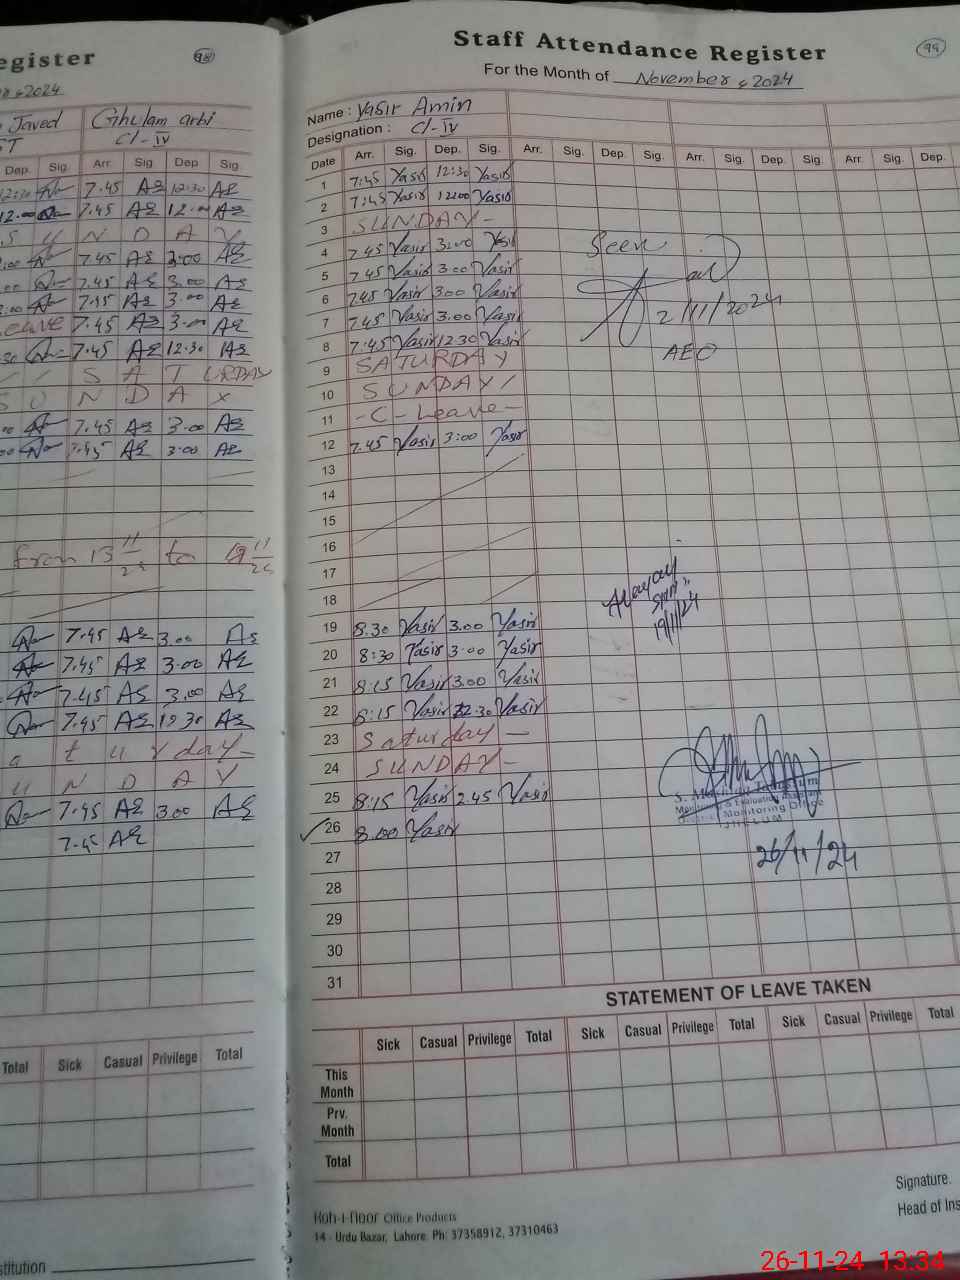 egister
98
2024
Javed
Ghulam arbi
ST
Cl-IV
Dep. Sig. Arr. Sig Dep Sig.
12:30 7.45 AS 12.30 AS
12.00 7.45 AS 12.00 AS
S U N D A Y
3.00 7.45 AS 3.00 AS
.00 7.45 AS 3.00 AS
3.00 7.45 AS 3.00 AS
Leave 7.45 AS 3.00 AS
30 7.45 AS 12.30 AS
S A T URDAY
S U N D A Y
00 7.45 AS 3.00 AS
00 7.45 AS 3.00 AS
from 13 11/24 to 19 11/24
7.45 AS 3.00 AS
7.45 AS 3.00 AS
7.45 AS 3.00 AS
7.45 AS 12 30 AS
a t u r day
U N D A Y
7.45 AS 3.00 AS
7.45 AS
Total Sick Casual Privilege Total
stitution
Staff Attendance Register
99
For the Month of November, 2024
Name : Yasir Amin
Designation : Cl-IV
Date Arr. Sig. Dep. Sig. Arr. Sig. Dep. Sig. Arr. Sig. Dep. Sig. Arr. Sig. Dep.
1 7:45 Yasir 12:30 Yasir
2 7:45 Yasir 12:00 Yasir
3 SUNDAY-
4 7.45 Yasir 3:00 Yasir
5 7.45 Yasir 3.00 Yasir
6 7.45 Yasir 3.00 Yasir
7 7.45 Yasir 3.00 Yasir
8 7.45 Yasir 12.30 Yasir
9 SATURDAY
10 SUNDAY
11 -C-Leave-
12 7.45 Yasir 3:00 Yasir
13
14
15
16
17
18
19 8.30 Yasir 3.00 Yasir
20 8:30 Yasir 3.00 Yasir
21 8:15 Yasir 3.00 Yasir
22 8:15 Yasir 12.30 Yasir
23 Saturday -
24 SUNDAY-
25 8:15 Yasir 2.45 Yasir
26 8.00 Yasir
27
28
29
30
31
Seen
2/11/2024
AEO
19/11/24
Monitoring & Evaluation
District Monitoring Office
JHELUM
26/11/24
STATEMENT OF LEAVE TAKEN
Sick Casual Privilege Total Sick Casual Privilege Total Sick Casual Privilege Total
This Month
Prv. Month
Total
Koh-i-Noor Office Products
14 - Urdu Bazar, Lahore. Ph: 37358912, 37310463
Signature.
Head of Ins
26-11-24 13:34